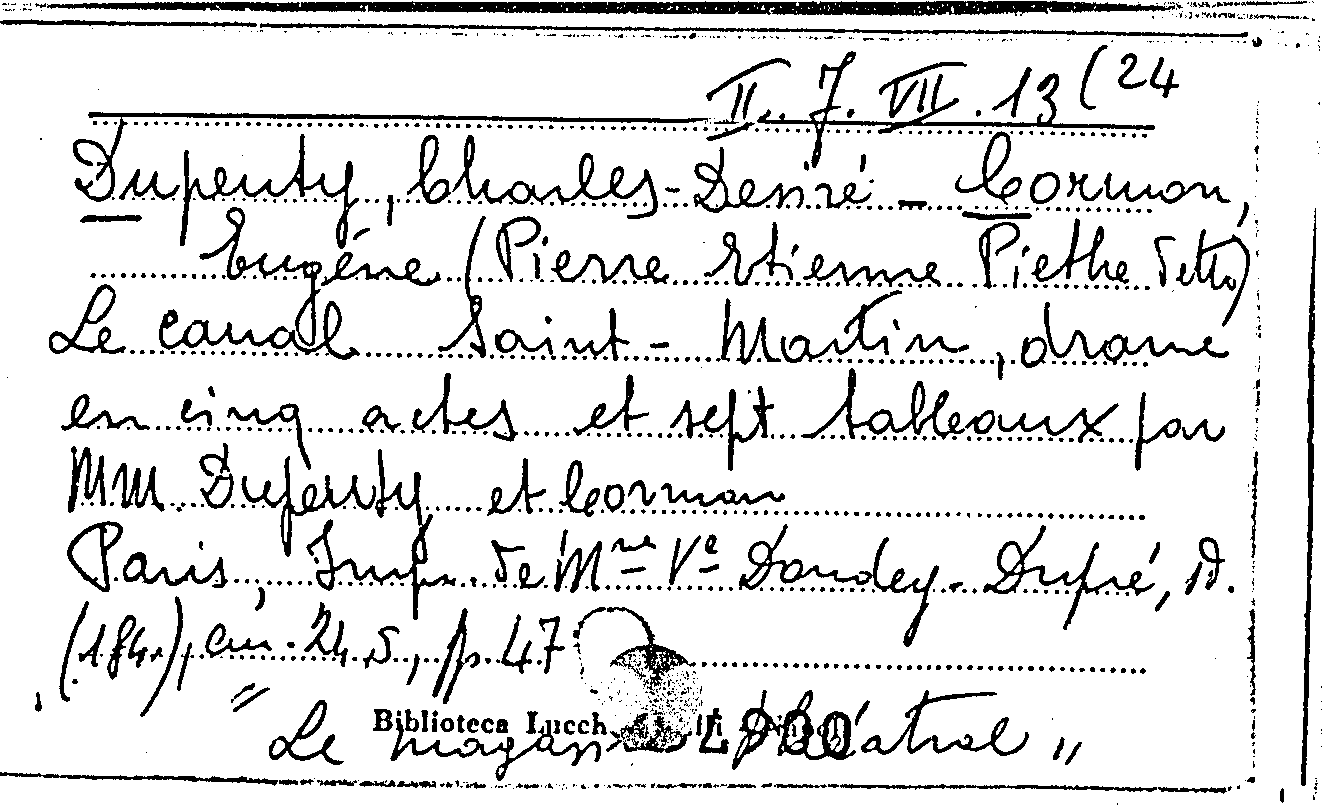 II. 7. VII. 13 (24
Dupeuty, Charles-Desiré - Cormon,
Eugène (Pierre Etienne Piethe detto)
Le canal Saint-Martin, drame
en cinq actes et sept tableaux par
MM. Dupeuty et Cormon
Paris, Imp. de Mme Ve Dondey-Dupré, s.d.
(184.), cm. 24,5, pp. 47
Biblioteca Lucch
"Le magas théatral"